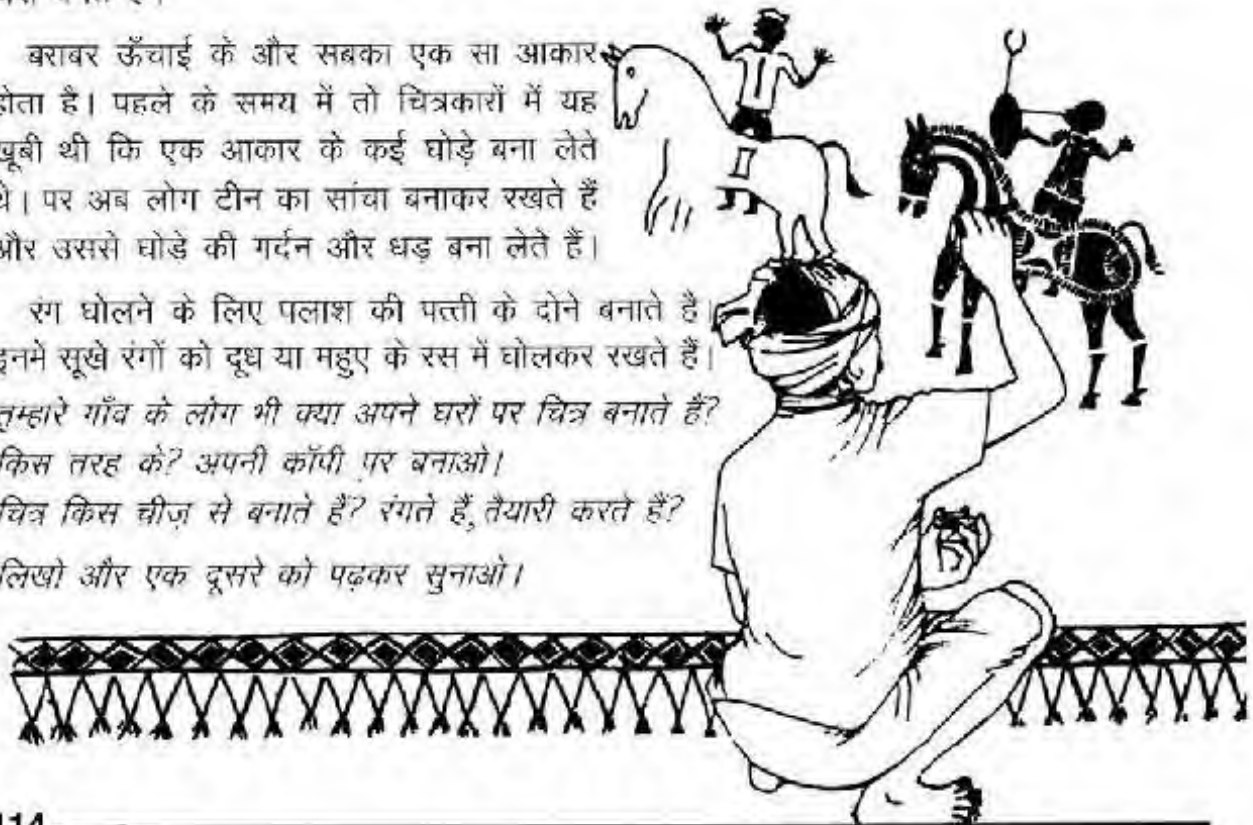 बराबर ऊँचाई के और सबका एक सा आकार
होता है। पहले के समय में तो चित्रकारों में यह
खूबी थी कि एक आकार के कई घोड़े बना लेते
थे। पर अब लोग टीन का सांचा बनाकर रखते हैं
और उससे घोडे की गर्दन और धड़ बना लेते हैं।
रंग घोलने के लिए पलाश की पत्ती के दोने बनाते है।
इनमें सूखे रंगों को दूध या महुए के रस में घोलकर रखते हैं।
तुम्हारे गाँव के लोग भी क्या अपने घरों पर चित्र बनाते हैं?
किस तरह के? अपनी कॉपी पर बनाओ।
चित्र किस चीज़ से बनाते हैं? रंगते हैं, तैयारी करते हैं?
लिखो और एक दूसरे को पढ़कर सुनाओ।
114